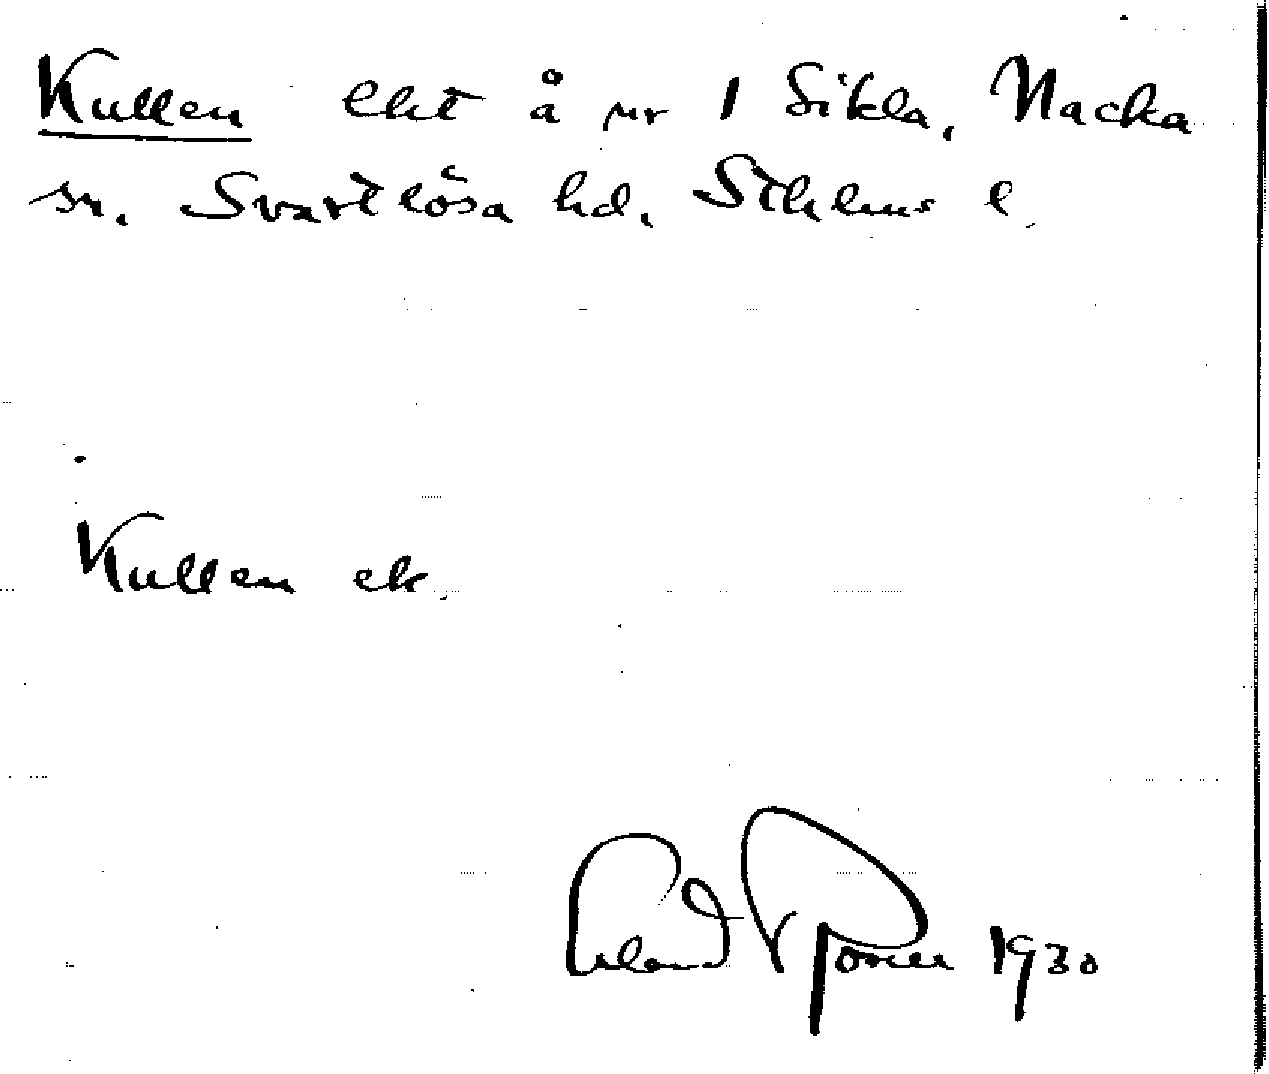 Kullen lht å nr 1 Sikla, Nacka
sn. Svartlösa hd. Sthlms l.
Kullen ek.
Erland Rosell 1930